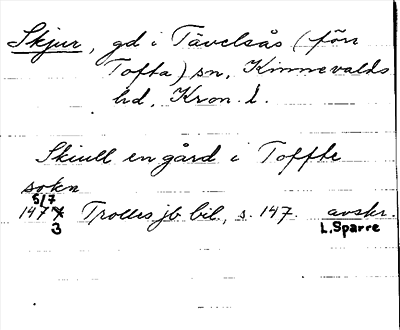 Skjur, gd i Tävelsås (förr
Tofta) sn, Kinnevalds
hd, Kron. l.
Skiull en gård i Toffte
sokn
5/7
1473 Trolles jb bil, s. 147. avskr.
L. Sparre